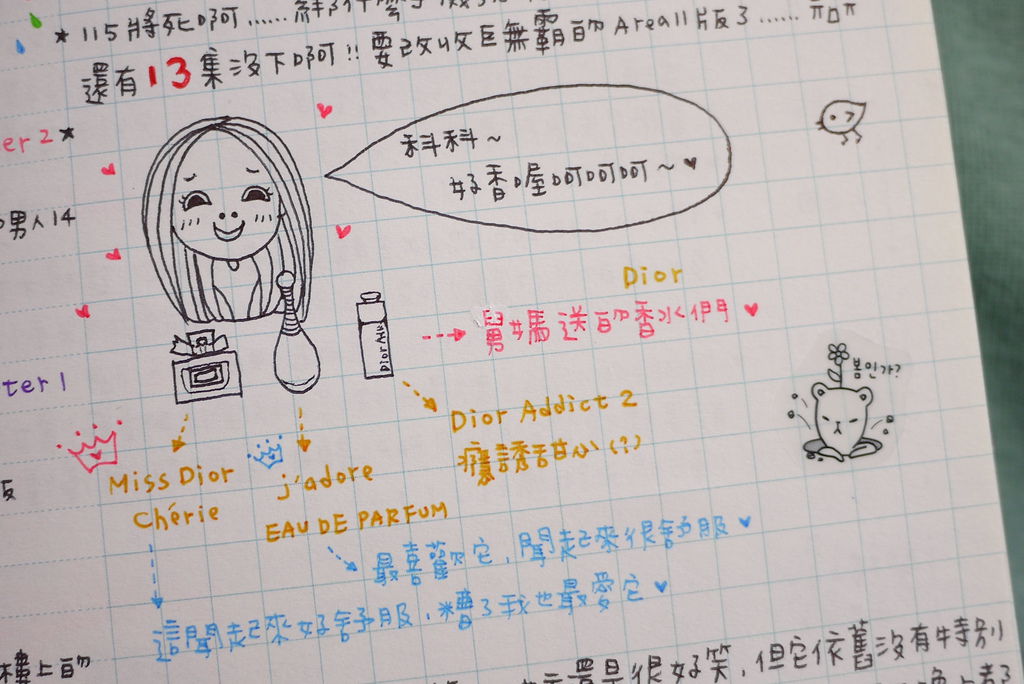 ★115將死啊......
還有13集沒下啊!!要改收巨無霸的Area11版了......
er 2★
男人14
科科~
好香喔呵呵呵~♥
Dior
舅媽送的香水們♥
Dior Addict
봄인가?
ter 1
Dior Addict 2
癮誘甜心(?)
Miss Dior
Chérie
j'adore
EAU DE PARFUM
最喜歡它,聞起來很舒服♥
這聞起來好舒服,糟了我也最愛它♥
樓上的
還是很好笑,但它依舊沒有特別